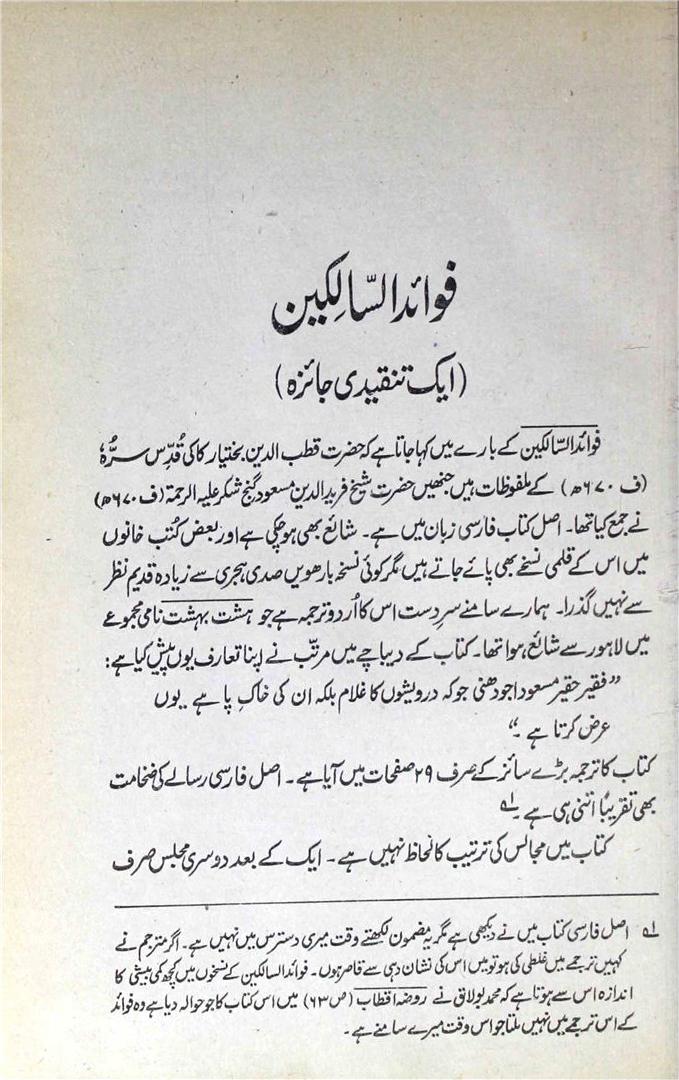 فوائد السّالِکین
(ایک تنقیدی جائزہ)
فوائد السّالکین کے بارے میں کہا جاتا ہے کہ حضرت قطب الدین بختیار کاکی قُدِّس سرُّہٗ
(ف ۶۷۰ھ) کے ملفوظات ہیں جنھیں حضرت شیخ فرید الدین مسعود گنج شکر علیہ الرحمۃ (ف ۶۷۰ھ)
نے جمع کیا تھا۔ اصل کتاب فارسی زبان میں ہے۔ شائع بھی ہو چکی ہے اور بعض کُتب خانوں
میں اس کے قلمی نسخے بھی پائے جاتے ہیں مگر کوئی نسخہ بارھویں صدی ہجری سے زیادہ قدیم نظر
سے نہیں گذرا۔ ہمارے سامنے سرِ دست اس کا اُردو ترجمہ ہے جو ہشت بہشت نامی مجموعے
میں لاہور سے شائع ہوا تھا۔ کتاب کے دیباچے میں مرتّب نے اپنا تعارف یوں پیش کیا ہے:
”فقیر حقیر مسعود اجودھنی جو کہ درویشوں کا غلام بلکہ ان کی خاکِ پا ہے یوں
عرض کرتا ہے۔“
کتاب کا ترجمہ بڑے سائز کے صرف ۲۹ صفحات میں آیا ہے۔ اصل فارسی رسالے کی ضخامت
بھی تقریباً اتنی ہی ہے۔ ؎۱
کتاب میں مجالس کی ترتیب کا لحاظ نہیں ہے۔ ایک کے بعد دوسری مجلس صرف
؎۱ اصل فارسی کتاب میں نے دیکھی ہے مگر یہ مضمون لکھتے وقت میری دسترس میں نہیں ہے۔ اگر مترجم نے
کہیں ترجمے میں غلطی کی ہو تو میں اس کی نشان دہی سے قاصر ہوں۔ فوائد السالکین کے نسخوں میں کچھ کمی بیشی کا
اندازہ اس سے ہوتا ہے کہ محمد بولاق نے روضۂ اقطاب (ص ۶۳) میں اس کتاب کا جو حوالہ دیا ہے وہ فوائد
کے اس ترجمے میں نہیں ملتا جو اس وقت میرے سامنے ہے۔